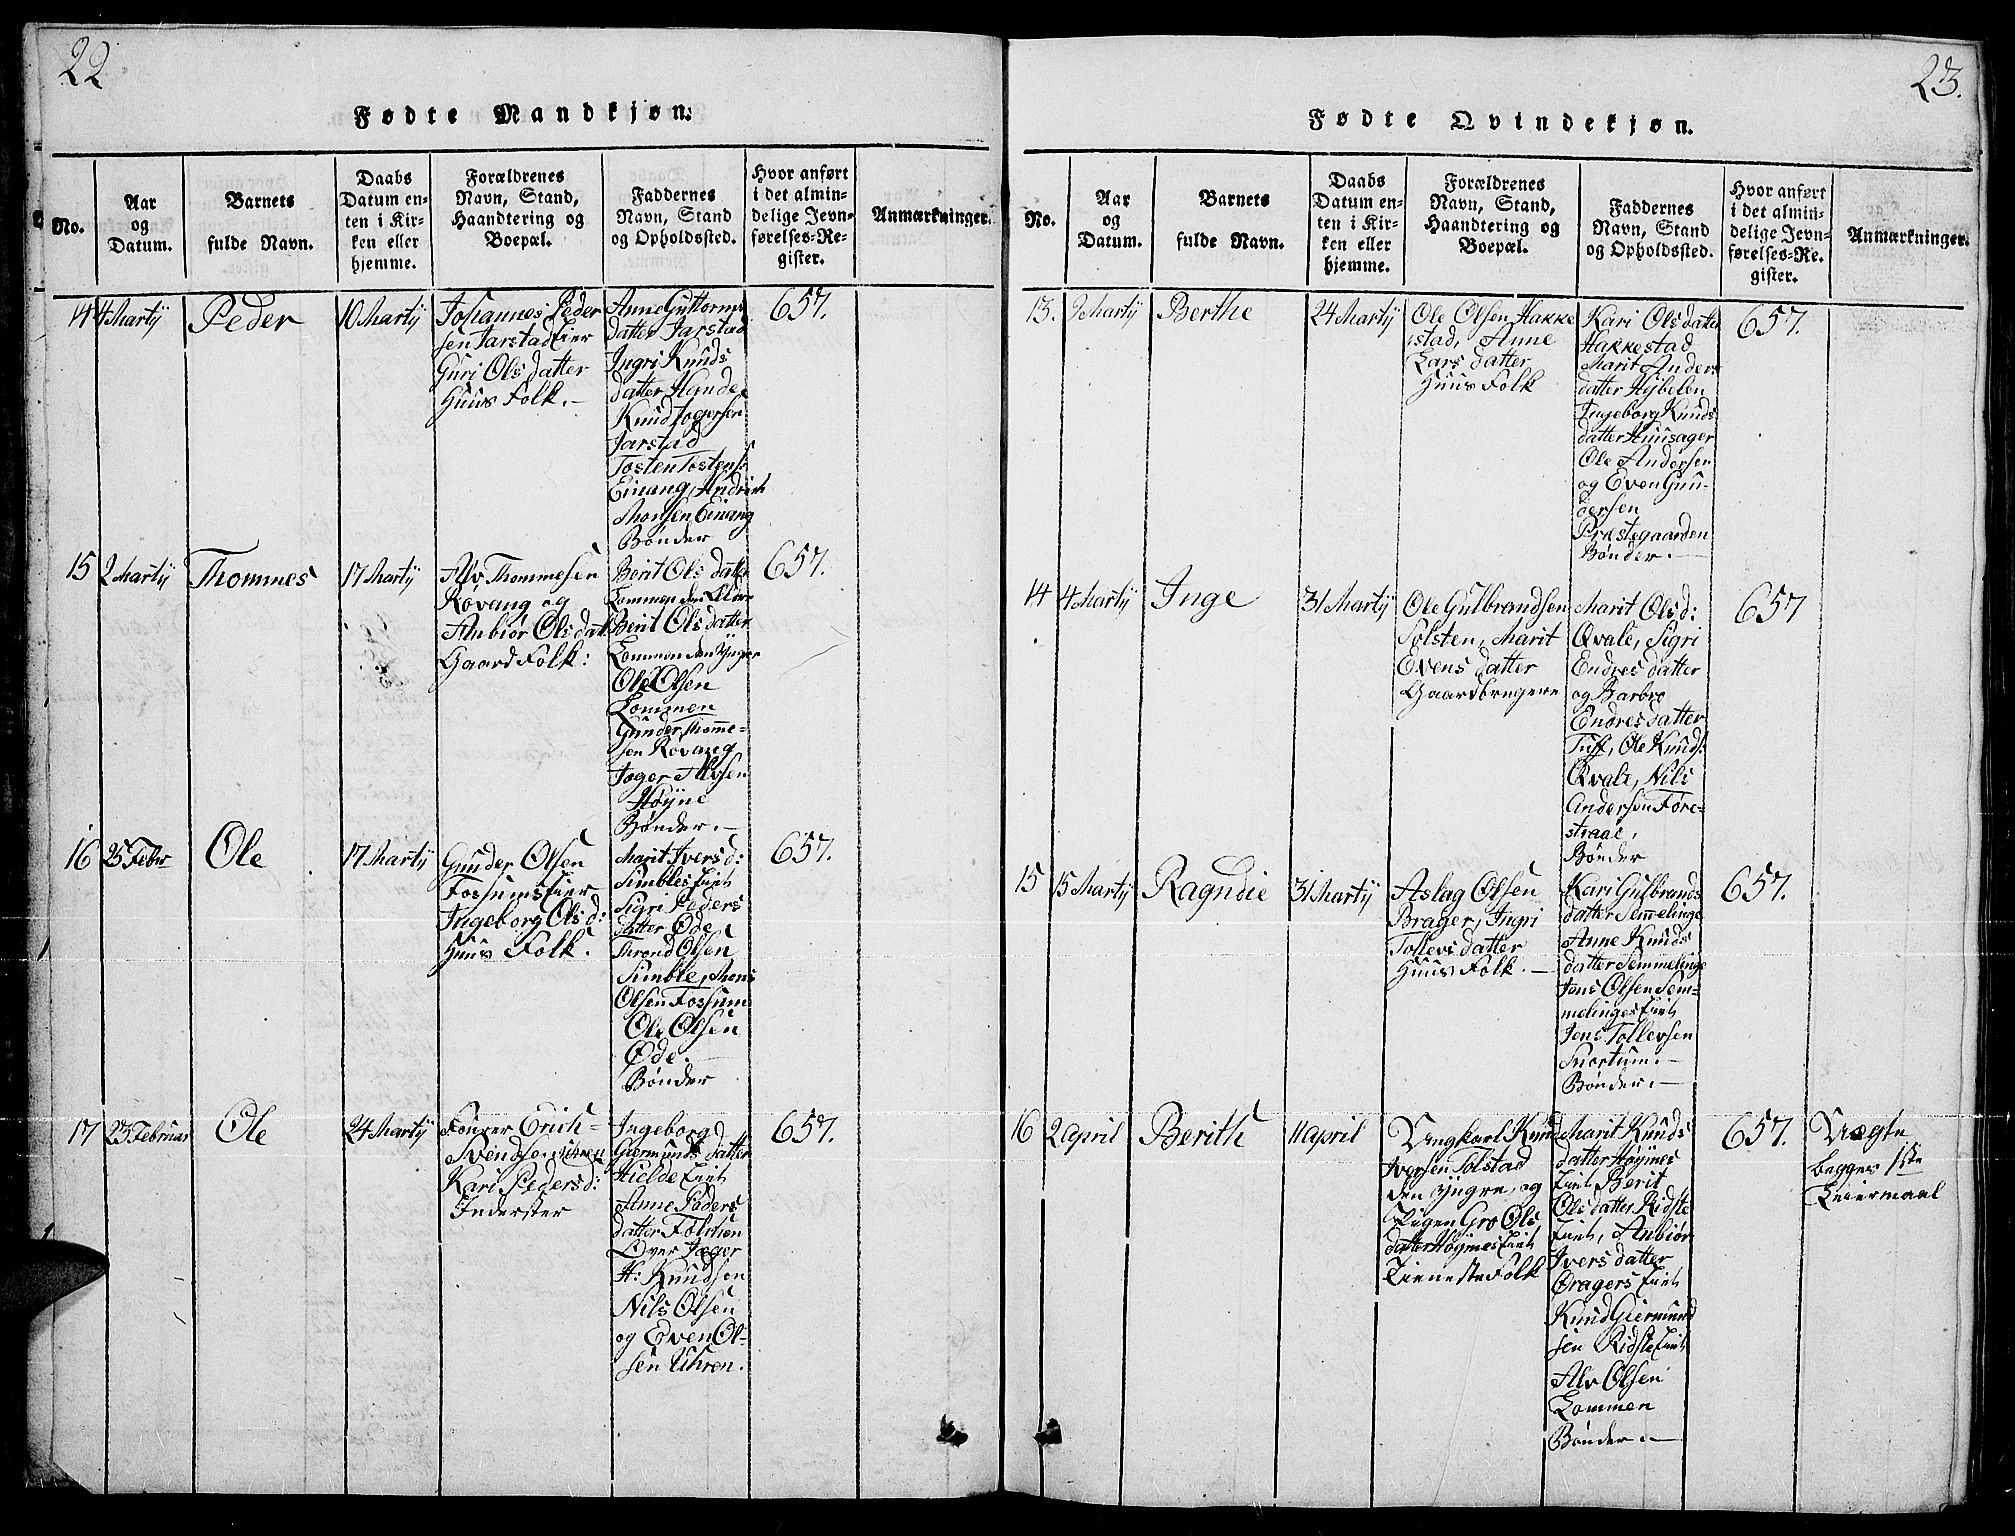 22
Fødte Mandkjøn.
No.
Aar
og
Datum.
Barnets
fulde Navn.
Daabs
Datum en-
ten i Kir-
ken eller
hjemme.
Forældrenes
Navn, Stand,
Haandtering og
Boepæl.
Faddernes
Navn, Stand
og Opholdssted.
Hvor anført
i det almin-
delige Jevn-
førelses-Re-
gister.
Anmærkninger.
14
4 Martÿ
Peder
10 Martÿ
Johannes Peder
sen Jarstad Eier
Guri Ols datter
Huus Folk.
Anne Guttorms
datter Jarstad
Ingri Knuds
datter Hande
Knud Jogersen
Jarstad
Tosten Tostens:
Einang, Andris
Monsen Einang
Bønder
657.
15
2 Martÿ
Thommes
17 Martÿ
Alv Thommesen
Røvang og
Anbiør Ols dat
Gaard Folk:
Berit Ols datter
Lommen den Eldre
Berit Ols datter
Lommen den Ÿnger
Ole Olsen
Lommen
Gunder Thomme-
sen Røvang
Joger Alvsen
Høÿne
Bønder.
657.
16
25 Febr
Ole
17 Martÿ
Gunder Olsen
Fossums Eier
Ingeborg Ols d:
Huus Folk.
Marit Ivers d:
Simbles Eiet
Sigri Peders
datter Øde
Thrond Olsen
Simble, Mons
Olsen Fossum
Ole Olsen
Øde.
Bønder
657.
17
23 Februar
Ole
24 Martÿ
Fourer Erich
Svendsen Uhren
Kari Peders d:
Inderster
Ingeborg
Giermunds datter
Hielde Eiet
Anne Peders
datter
Over Jæger
H: Knudsen
Nils Olsen
og Even Ol-
sen Uhren.
657.
23.
Fødte Qvindekjøn.
No.
Aar
og
Datum.
Barnets
fulde Navn.
Daabs
Datum en-
ten i Kir-
ken eller
hjemme.
Forældrenes
Navn, Stand,
Haandtering og
Boepæl.
Faddernes
Navn, Stand
og Opholdssted.
Hvor anført
i det almin-
delige Jevn-
førelses-Re-
gister.
Anmærkninger.
13.
Martÿ
Berthe
24 Martÿ
Ole Olsen Hakke
stad, Anne
Lars datter
Huus Folk
Kari Ols datter
Hakkestad
Marit Anders
datter Hÿbelen
Ingeborg Knuds
datter Huusager
Ole Andersen
og Even Gun-
dersen
Præstegaarden
Bønder.
657.
14
4 Martÿ
Inge
31 Martÿ
Ole Gulbrandsen
Solsten, Marit
Evens datter
Gaardbrugere
Marit Ols d:
Qvale, Sigri
Endres datter
og Barbro
Endres datter
Tuff, Ole Knuds:
Qvale, Nils
Andersen Føre-
straae,
Bønder
657
15
15 Martÿ
Ragndie
31 Martÿ
Aslag Olsen
Brager, Ingri
Tollevs datter
Huus Folk.
Kari Gulbrands
datter Semmelinge
Anne Knuds
datter Semmelinge
Jens Olsen Sem-
melinges Eiet
Jens Tollevsen
Snortum.
Bønder.
657.
16
2 April
Berith
11 April
Ungkarl Knud
Iversen Tolstad
den Ÿngre, og
Pigen Gro Ols
datter Høÿnes Eiet
Tieneste Folk
Marit Knuds
datter Høÿnes
Eiet Berit
Ols datter Ridste
Eiet, Anbiør
Ivers datter
Dragers Eiet
Knud Giermund
sen Ridste Eiet
Alv Olsen
Lommen
Bønder.
657.
Uægte
begges 1ste
Leiermaal